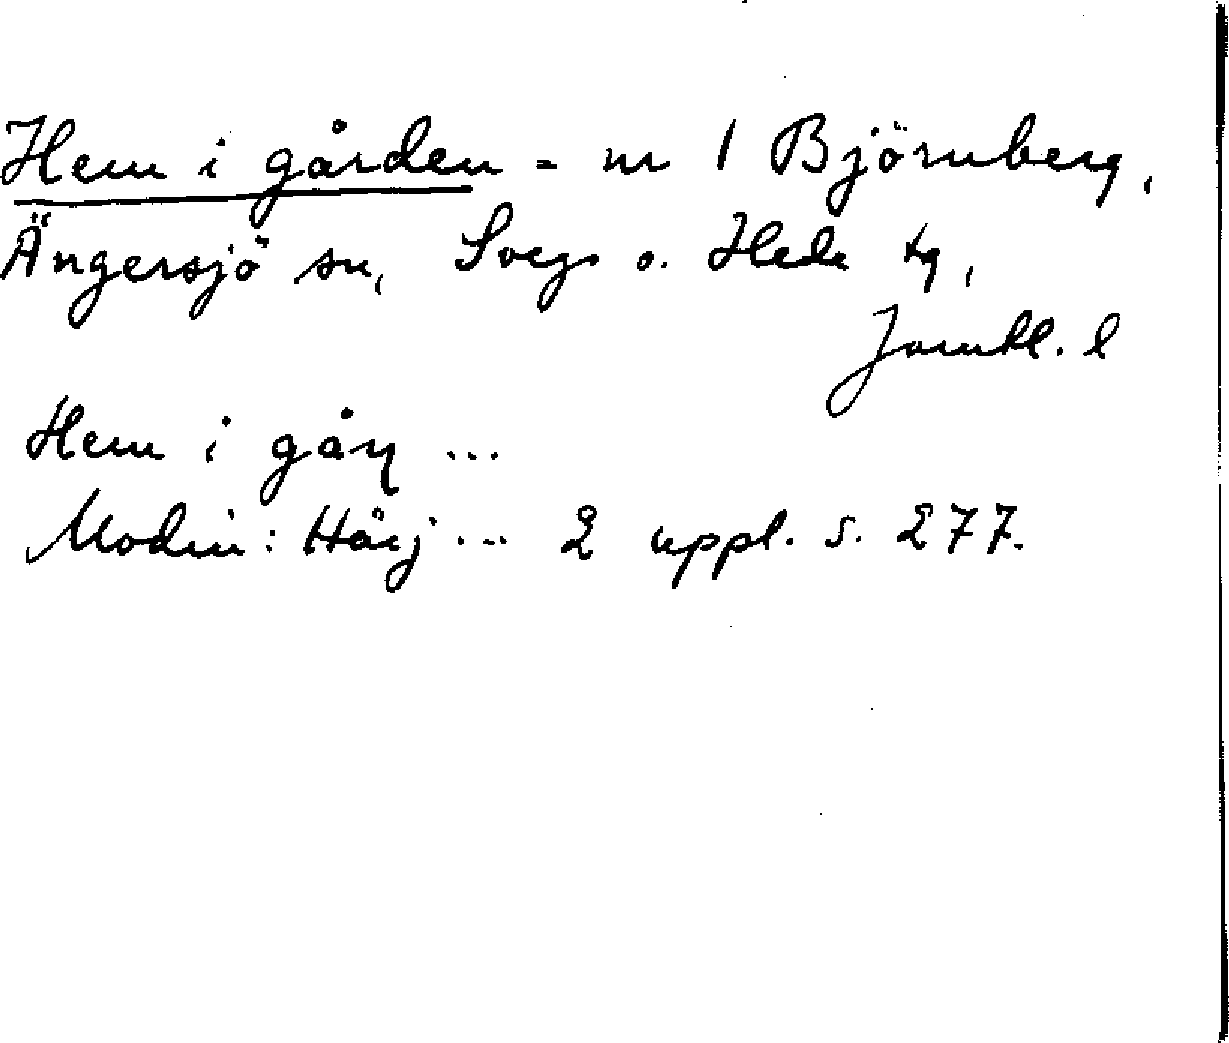 Hem i gården = nr 1 Björnberg,
Ängersjö sn, Svegs o. Hede tg,
Jämtl. l
Hem i gåɳ ...
Modin: Härj ... 2 uppl. s. 277.